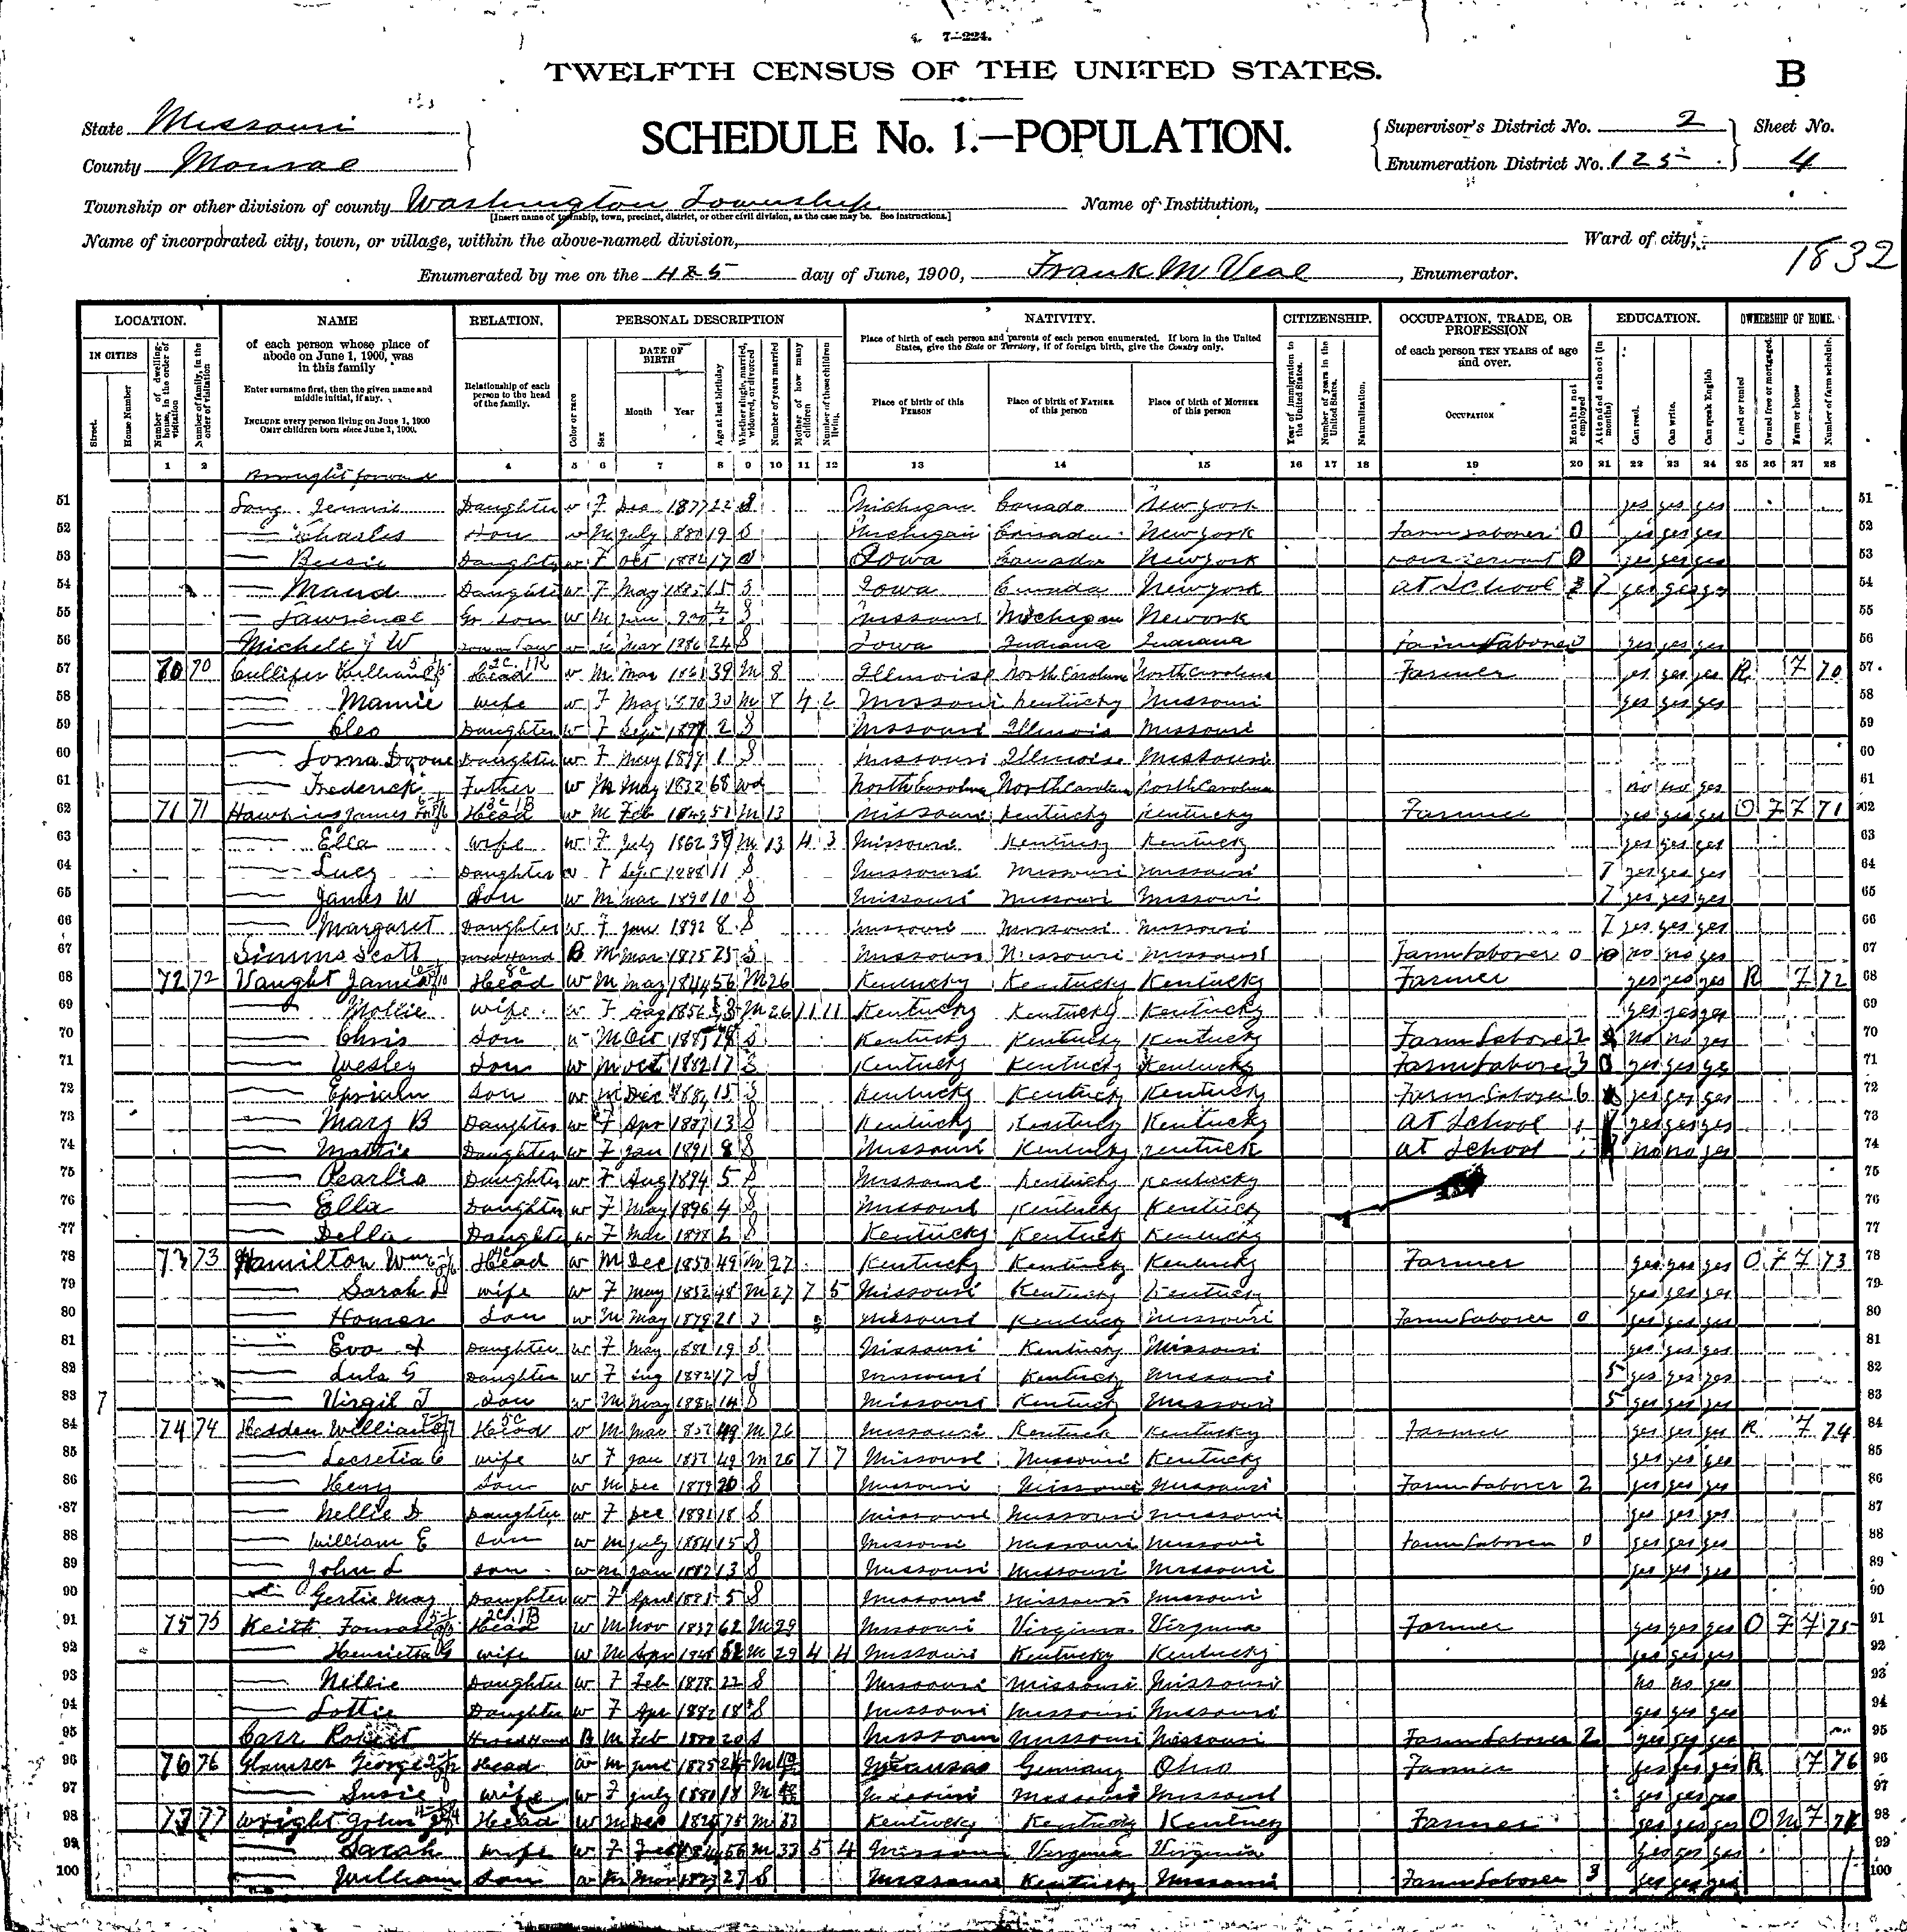 7—224.
TWELFTH CENSUS OF THE UNITED STATES.
B
State Missouri
County Monroe
SCHEDULE No. 1.—POPULATION.
Supervisor's District No. 2
Enumeration District No. 125
Sheet No.
4
Township or other division of county Washington Township Name of Institution,
[Insert name of township, town, precinct, district, or other civil division, as the case may be. See instructions.]
Name of incorporated city, town, or village, within the above-named division, Ward of city,
1832
Enumerated by me on the 4 & 5 day of June, 1900, Frank M Veal, Enumerator.
LOCATION. NAME RELATION. PERSONAL DESCRIPTION NATIVITY. CITIZENSHIP. OCCUPATION, TRADE, OR PROFESSION EDUCATION. OWNERSHIP OF HOME.
IN CITIES
Street.
House Number
Number of dwelling-house, in the order of visitation
Number of family, in the order of visitation
of each person whose place of abode on June 1, 1900, was in this family
Enter surname first, then the given name and middle initial, if any.
INCLUDE every person living on June 1, 1900
OMIT children born since June 1, 1900.
Relationship of each person to the head of the family.
Color or race
Sex
DATE OF BIRTH
Month Year
Age at last birthday
Whether single, married, widowed, or divorced
Number of years married
Mother of how many children
Number of these children living
Place of birth of each person and parents of each person enumerated. If born in the United States, give the State or Territory, if of foreign birth, give the Country only.
Place of birth of this PERSON
Place of birth of FATHER of this person
Place of birth of MOTHER of this person
Year of immigration to the United States.
Number of years in the United States.
Naturalization.
of each person TEN YEARS of age and over.
OCCUPATION
Months not employed
Attended school (in months)
Can read.
Can write.
Can speak English
Owned free or mortgaged.
Farm or house
Number of farm schedule.
1 2 3 4 5 6 7 8 9 10 11 12 13 14 15 16 17 18 19 20 21 22 23 24 25 26 27 28
Brought forward
51 Jennie Daughter w F Dec 1877 22 S Michigan Canada New york yes yes yes 51
52 Charles Son w M July 1880 19 S Michigan Canada New york Farm Laborer 0 yes yes yes 52
53 Bessie Daughter w F Oct 1882 17 S Iowa Canada New york yes yes yes 53
54 Maud Daughter w F May 1885 15 S Iowa Canada New york at School 7 yes yes yes 54
55 Lawrence Gr Son w M S Missouri Michigan 55
56 W w Mar 24 S Iowa Indiana Indiana Farm Laborer yes yes yes 56
57 70 70 Cullifer William Head w M Mar 1861 39 M 8 Illinois North Carolina North Carolina Farmer yes yes yes R F 70 57
58 Mamie wife w F May 1870 30 M 8 4 2 Missouri Kentucky Missouri yes yes yes 58
59 Cleo Daughter w F Sept 1897 2 S Missouri Illinois Missouri 59
60 Lorna Doone Daughter w F May 1899 1 S Missouri Illinois Missouri 60
61 Frederick Father w M May 1832 68 wd North Carolina North Carolina North Carolina no no yes 61
62 71 71 Hawkins James Head w M Feb 1849 51 M 13 Missouri Kentucky Kentucky Farmer yes yes yes O F F 71 62
63 Ella wife w F July 1862 37 M 13 4 3 Missouri Kentucky Kentucky yes yes yes 63
64 Lucy Daughter w F Sept 1888 11 S Missouri Missouri Missouri 7 yes yes yes 64
65 James W Son w M Mar 1890 10 S Missouri Missouri Missouri 7 yes yes yes 65
66 Margaret Daughter w F Jan 1892 8 S Missouri Missouri Missouri 7 yes yes yes 66
67 Simms Scott Hired Hand B M Mar 1875 25 S Missouri Missouri Missouri Farm Laborer 0 no no yes 67
68 72 72 Vaught James Head w M May 1844 56 M 26 Kentucky Kentucky Kentucky Farmer yes yes yes R F 72 68
69 Mollie wife w F M 26 11 11 Kentucky Kentucky Kentucky yes yes yes 69
70 Chris Son w M Oct S Kentucky Kentucky Kentucky Farm Laborer 2 no no yes 70
71 Wesley Son w M Oct 1882 17 S Kentucky Kentucky Kentucky Farm Laborer 3 yes yes yes 71
72 Son w M Dec 1884 15 S Kentucky Kentucky Kentucky Farm Laborer 6 yes yes yes 72
73 Mary B Daughter w F Apr 1887 13 S Kentucky Kentucky Kentucky at School yes yes yes 73
74 Mattie Daughter w F Jan 1891 S Missouri Kentucky at School no no yes 74
75 Pearlie Daughter w F Aug 1894 5 S Missouri Kentucky Kentucky 75
76 Ella Daughter w F May 1896 4 S Missouri Kentucky Kentucky 76
77 Della Daughter w F Mar 1898 2 S Kentucky Kentucky Kentucky 77
78 73 73 Hamilton Wm Head w M Dec 1850 49 M 27 Kentucky Kentucky Kentucky Farmer yes yes yes O F F 73 78
79 Sarah D wife w F May 1852 48 M 27 7 5 Missouri Kentucky Kentucky yes yes yes 79
80 Homer Son w M May 1879 21 S Missouri Kentucky Missouri Farm Laborer 0 yes yes yes 80
81 Eva Daughter w F May 19 S Missouri Kentucky Missouri yes yes yes 81
82 Lula G Daughter w F Aug 1882 17 S Missouri Kentucky Missouri 5 yes yes yes 82
83 Virgil T Son w M May 1886 14 S Missouri Kentucky Missouri 5 yes yes yes 83
84 74 74 William Head w M Mar 49 M 26 Missouri Kentucky Kentucky Farmer yes yes yes R F 74 84
85 Lecretia C wife w F Jan 49 M 26 7 7 Missouri Missouri Kentucky yes yes yes 85
86 Henry Son w M Dec 1879 20 S Missouri Missouri Missouri Farm Laborer 2 yes yes yes 86
87 Nellie D Daughter w F Dec 1881 18 S Missouri Missouri Missouri yes yes yes 87
88 William E Son w M July 1884 15 S Missouri Missouri Missouri Farm Laborer 0 yes yes yes 88
89 John L Son w M Jan 13 S Missouri Missouri Missouri yes yes yes 89
90 Gertie May Daughter w F April 1895 5 S Missouri Missouri Missouri 90
91 75 75 Keith Head w M Nov 1837 62 M 29 Missouri Virginia Virginia Farmer yes yes yes O F F 75 91
92 Henrietta G wife w M Apr M 29 4 4 Missouri Kentucky Kentucky yes yes yes 92
93 Nillie Daughter w F Feb 1878 22 S Missouri Missouri Missouri no no yes 93
94 Lottie Daughter w F Apr 1882 18 S Missouri Missouri Missouri yes yes yes 94
95 Carr Robert Hired Hand B M Feb 1880 20 S Missouri Missouri Missouri Farm Laborer 2 yes yes yes 95
96 76 76 George Head w M June 1875 24 M Kansas Germany Ohio Farmer yes yes yes R F 76 96
97 Susie wife w F July 1881 18 M Missouri Missouri Missouri yes yes yes 97
98 77 77 Wright John Head w M Dec M 33 Kentucky Kentucky Kentucky Farmer yes yes yes O M F 98
99 Sarah wife w F Feb 1844 56 M 33 5 4 Missouri Virginia Virginia yes yes yes 99
100 William Son w M Mar 27 S Missouri Kentucky Missouri Farm Laborer 3 yes yes yes 100